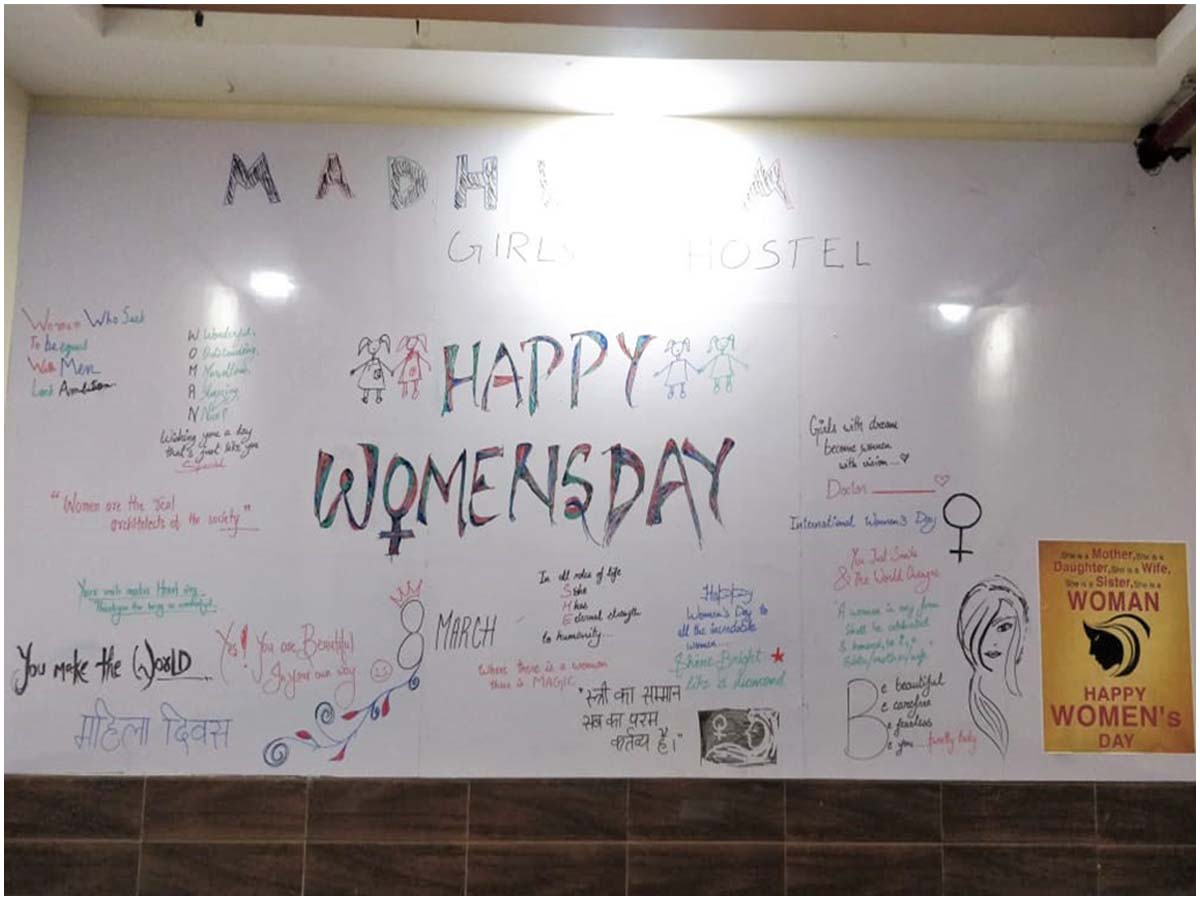 MADH A
GIRLS HOSTEL
Women Who Seek
To be equal
With Men
Lack Ambition
W Wonderful,
O Outstanding,
M Marvellous,
A Amazing
N Nice!
Wishing you a day
that's just like you
Special
HAPPY
WOMENSDAY
"Women are the real
architects of the society"
Girls with dreams
become women
with vision...
Doctor
International Women's Day
You Just Smile
& The World Changes
"A women in any form
shall be celebrated
& honored,
Your smile makes
Thankyou for being so wonderful.
You make the WorLD
Yes! You are Beautiful
In your own way
महिला दिवस
8 MARCH
In all roles of life
She
Has
Eternal strength
to humanity...
Where there is a woman
there is MAGIC
Happy
Women's Day to
all the incredible
women...
Shine Bright
like a diamond
"स्त्री का सम्मान
सब का परम
कर्तव्य है।"
Be beautiful
Be carefree
Be fearless
Be you... pretty lady
She is a Mother, She is a
Daughter, She is a Wife,
She is a Sister, She is a
WOMAN
HAPPY
WOMEN's
DAY